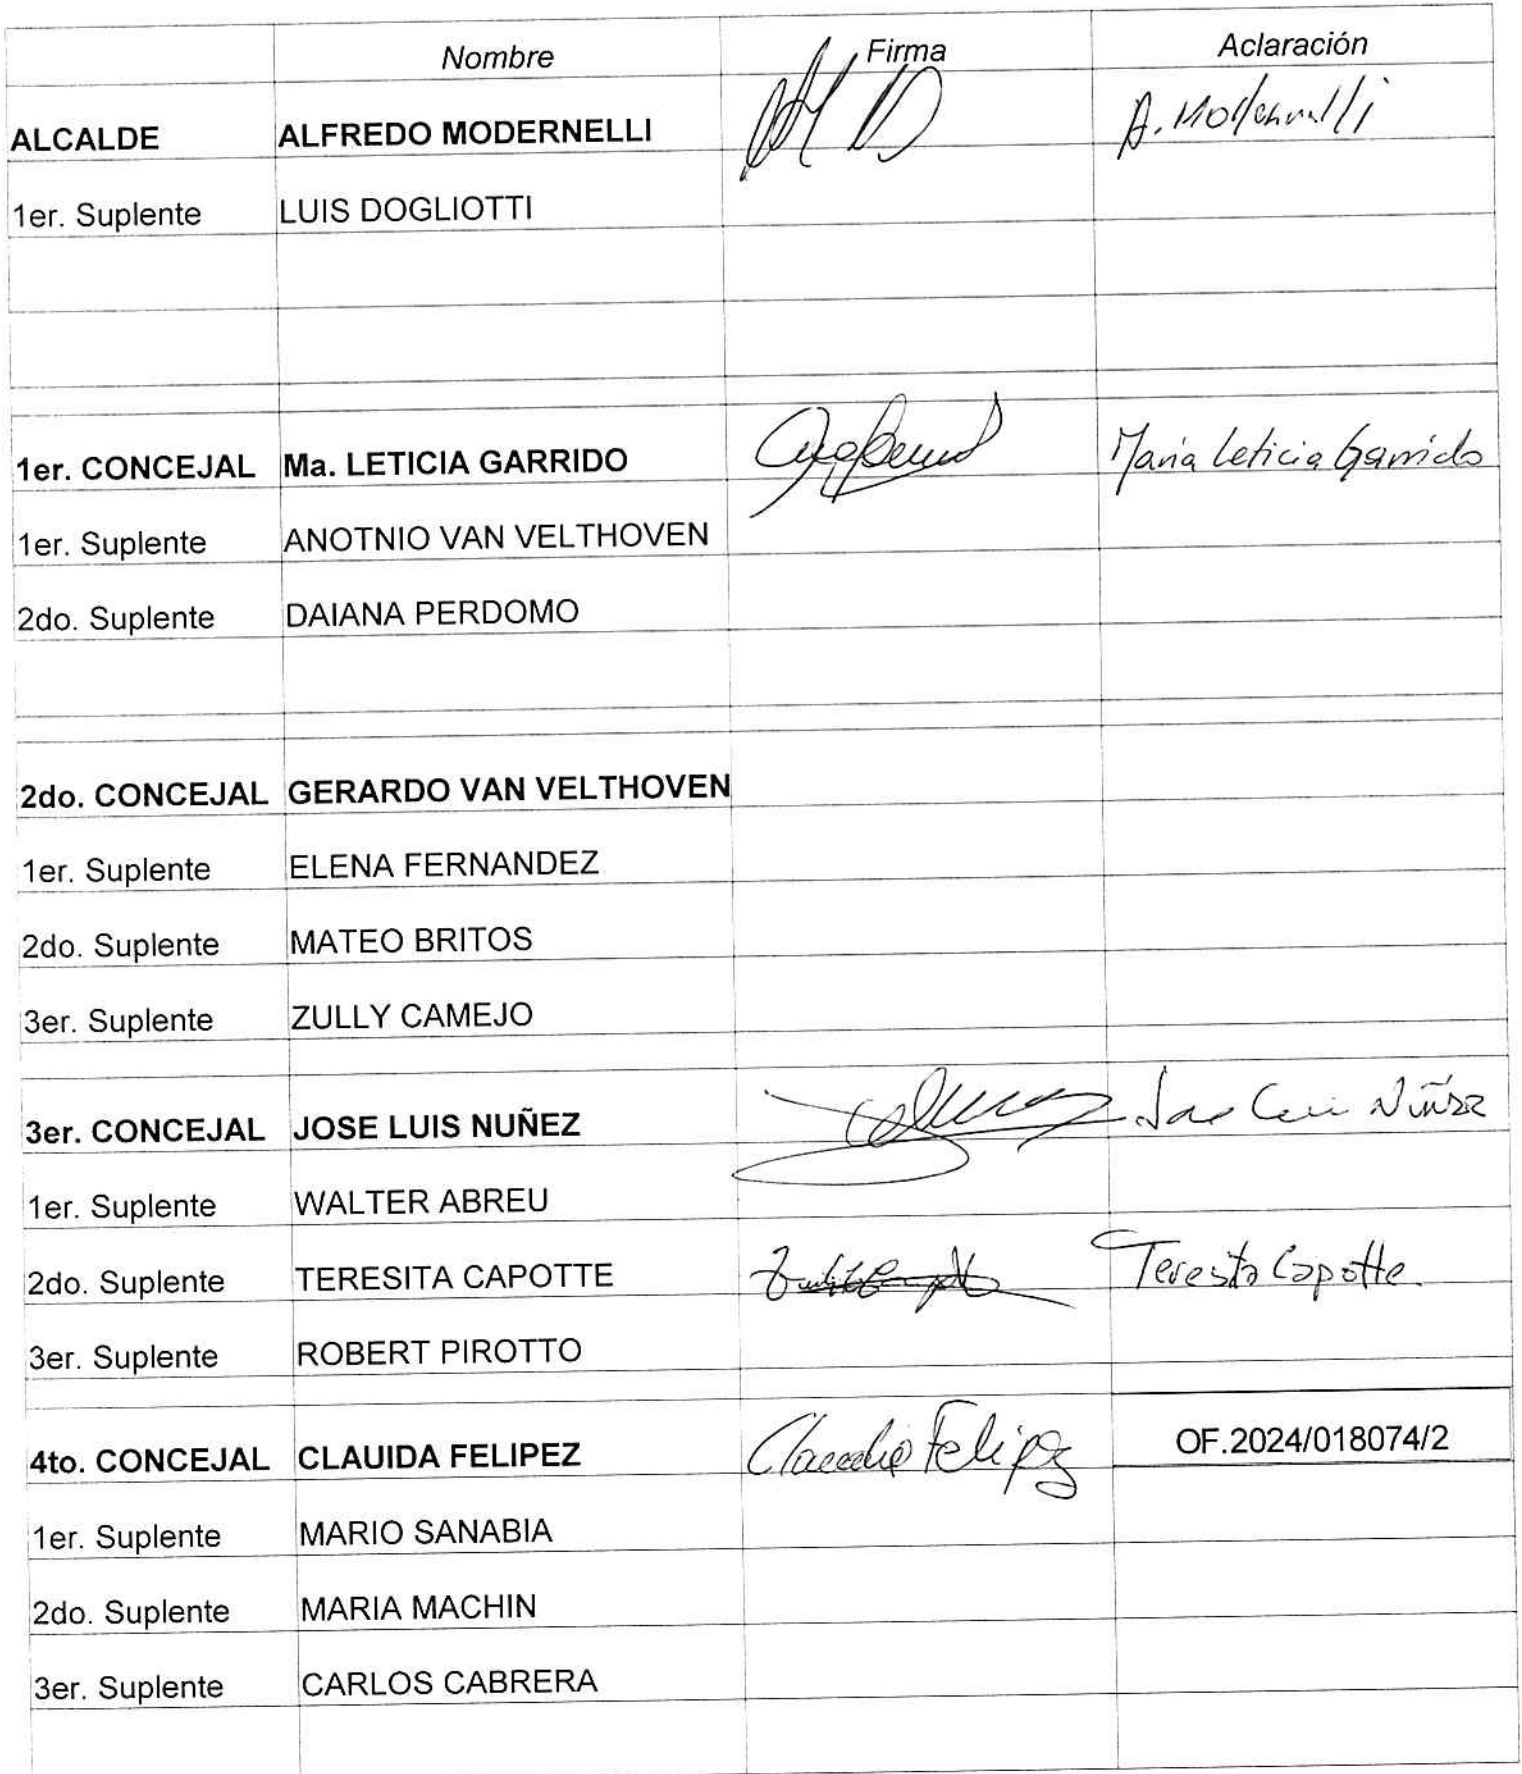 Nombre Firma Aclaración
ALCALDE ALFREDO MODERNELLI A. Modernelli
1er. Suplente LUIS DOGLIOTTI
1er. CONCEJAL Ma. LETICIA GARRIDO Maria Leticia Garrido
1er. Suplente ANOTNIO VAN VELTHOVEN
2do. Suplente DAIANA PERDOMO
2do. CONCEJAL GERARDO VAN VELTHOVEN
1er. Suplente ELENA FERNANDEZ
2do. Suplente MATEO BRITOS
3er. Suplente ZULLY CAMEJO
3er. CONCEJAL JOSE LUIS NUÑEZ Jose Luis Nuñez
1er. Suplente WALTER ABREU
2do. Suplente TERESITA CAPOTTE Teresita Capotte
3er. Suplente ROBERT PIROTTO
4to. CONCEJAL CLAUIDA FELIPEZ Claudia Felipez OF.2024/018074/2
1er. Suplente MARIO SANABIA
2do. Suplente MARIA MACHIN
3er. Suplente CARLOS CABRERA